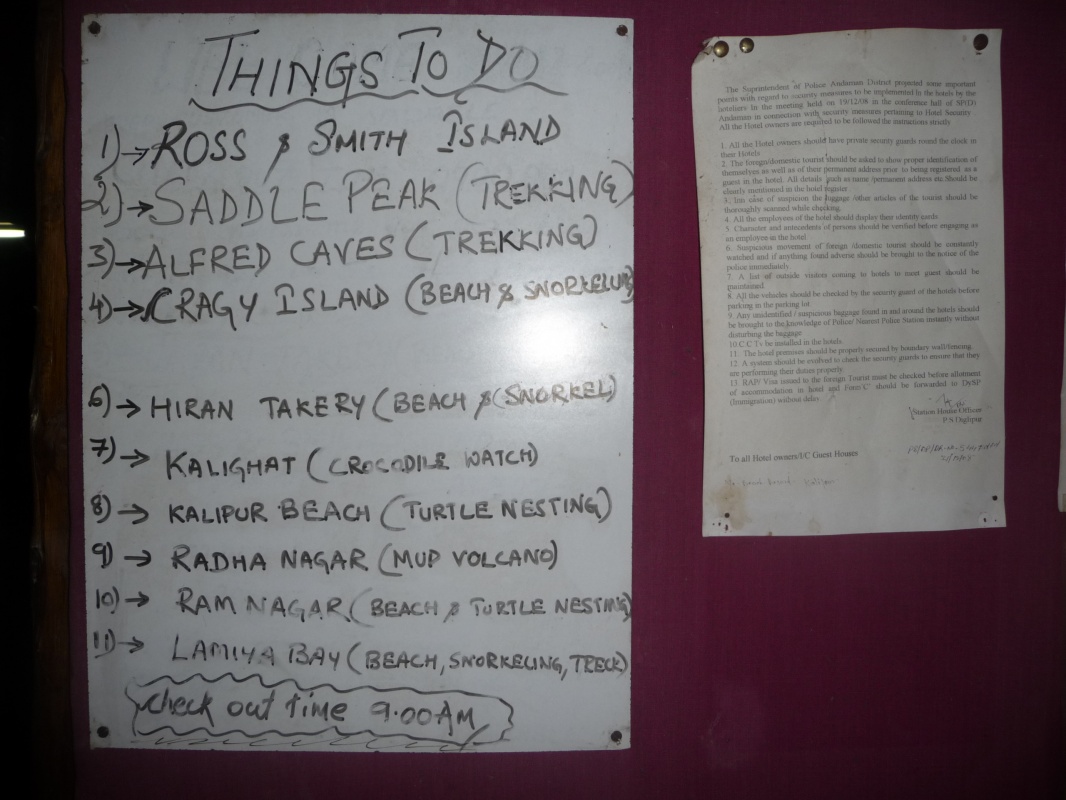 THINGS TO DO
1)→ ROSS & SMITH ISLAND
2)→ SADDLE PEAK (TREKKING)
3)→ ALFRED CAVES (TREKKING)
4)→ CRAGY ISLAND (BEACH & SNORKELING)
6)→ HIRAN TAKERY (BEACH & (SNORKEL)
7)→ KALIGHAT (CROCODILE WATCH)
8)→ KALIPUR BEACH (TURTLE NESTING)
9)→ RADHA NAGAR (MUD VOLCANO)
10)→ RAM NAGAR (BEACH & TURTLE NESTING)
11)→ LAMIYA BAY (BEACH, SNORKELING, TRECK)
check out time 9.00AM
The Suprintendent of Police Andaman District projected some important
points with regard to security measures to be implemented in the hotels by the
hoteliers In the meeting held on 19/12/08 in the conference hall of SP(D)
Andaman in connection with security measures pertaining to Hotel Security
All the Hotel owners are required to be followed the instructions strictly
1. All the Hotel owners should have private security guards round the clock in
their Hotels
2. The foreign/domestic tourist should be asked to show proper identification of
themselves as well as of their permanent address prior to being registered as a
guest in the hotel. All details such as name /permanent address etc Should be
clearly mentioned in the hotel register
3. Inn case of suspicion the luggage /other articles of the tourist should be
thoroughly scanned while checking.
4. All the employees of the hotel should display their identity cards
5. Character and antecedents of persons should be verified before engaging as
an employee in the hotel
6. Suspicious movement of foreign /domestic tourist should be constantly
watched and if anything found adverse should be brought to the notice of the
police immediately
7. A list of outside visitors coming to hotels to meet guest should be
maintained
8. All the vehicles should be checked by the security guard of the hotels before
parking in the parking lot
9. Any unidentified / suspicious baggage found in and around the hotels should
be brought to the knowledge of Police/ Nearest Police Station instantly without
disturbing the baggage
10.C C Tv be installed in the hotels.
11. The hotel premises should be properly secured by boundary wall/fencing.
12. A system should be evolved to check the security guards to ensure that they
are performing their duties properly.
13. RAP/ Visa issued to the foreign Tourist must be checked before allotment
of accommodation in hotel and Form"C" should be forwarded to DySP
(Immigration) without delay
Station House Officer
P.S Diglipur
To all Hotel owners/I/C Guest Houses